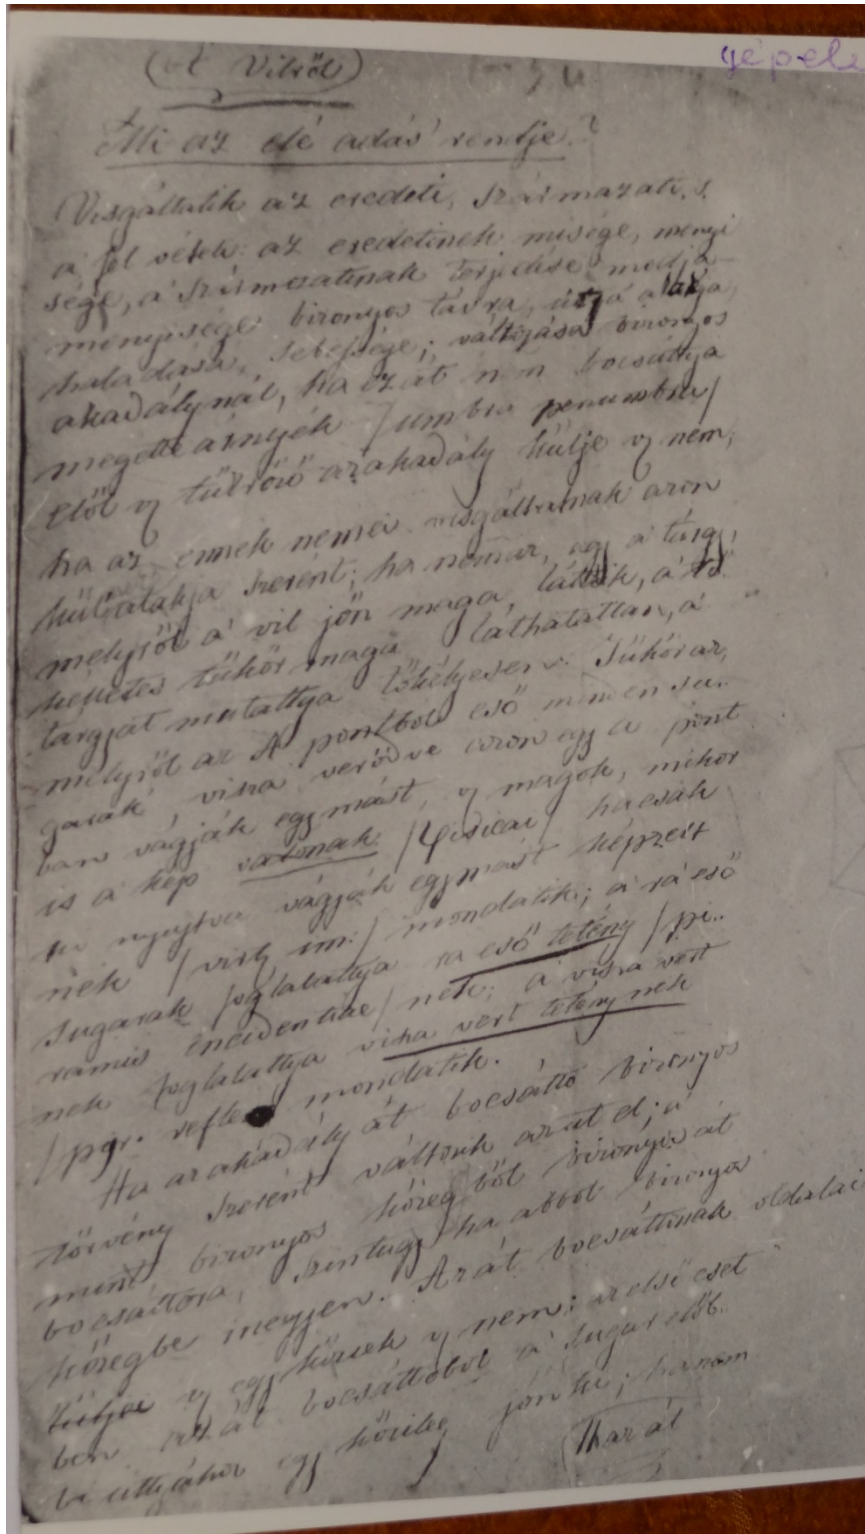 gépele
(A' Vilről)
Mi az elé adás' rendje?
Visgáltatik az eredeti, származati, s
a' fel vétek: az eredetinek misége, menyi
sége, a' származatinak terjedése modja
menyisége bizonyos távra, útja alakja,
haladása, sebessége; változása bizonyos
akadálynál, ha ezát nem bocsáttya
megette árnyék /umbra penumbra/
elöl vj tükröző azakadály külje vj nem,
ha az, ennek nemei visgáltatnak azon
kül alakja szerént; ha nem az, ugy a' tárgy,
melyről a' vil jön maga láttzik, a' tö
kélletes tükör maga láthatatlan, a'
tárgyát mutattya tökélyesen. Tükör az,
melyről az A pontbol eső minden su..
garak, visza verődve azon egy a pont
ban vágják egymást, vj magok, mikor
is a' kép valonak /fisicai/ ha csak
ki nyujtva vágják egymást képzeit
nek /virt. im:/ mondatik; a' rá eső
sugarak foglalattya rá eső tetény /pi..
ramis incidentiae/ nek; a' visza vert
nek foglalattya visza vert tetény nek
/pyr. reflex mondatik.
Ha az akadály át bocsáttó bizonyos
törvény szerént változik azut el; a'
mint bizonyos közeg ből bizonyos át
bocsáttóra, szintugy ha abbol bizonyos
közegbe menjen. Az át bocsáttónak oldalai
küljei vj egy közüek vj nem; az első eset
ben az át bocsáttobol a' sugar elöb
be uttyához egy közüleg jön ki; ha nem
Az át